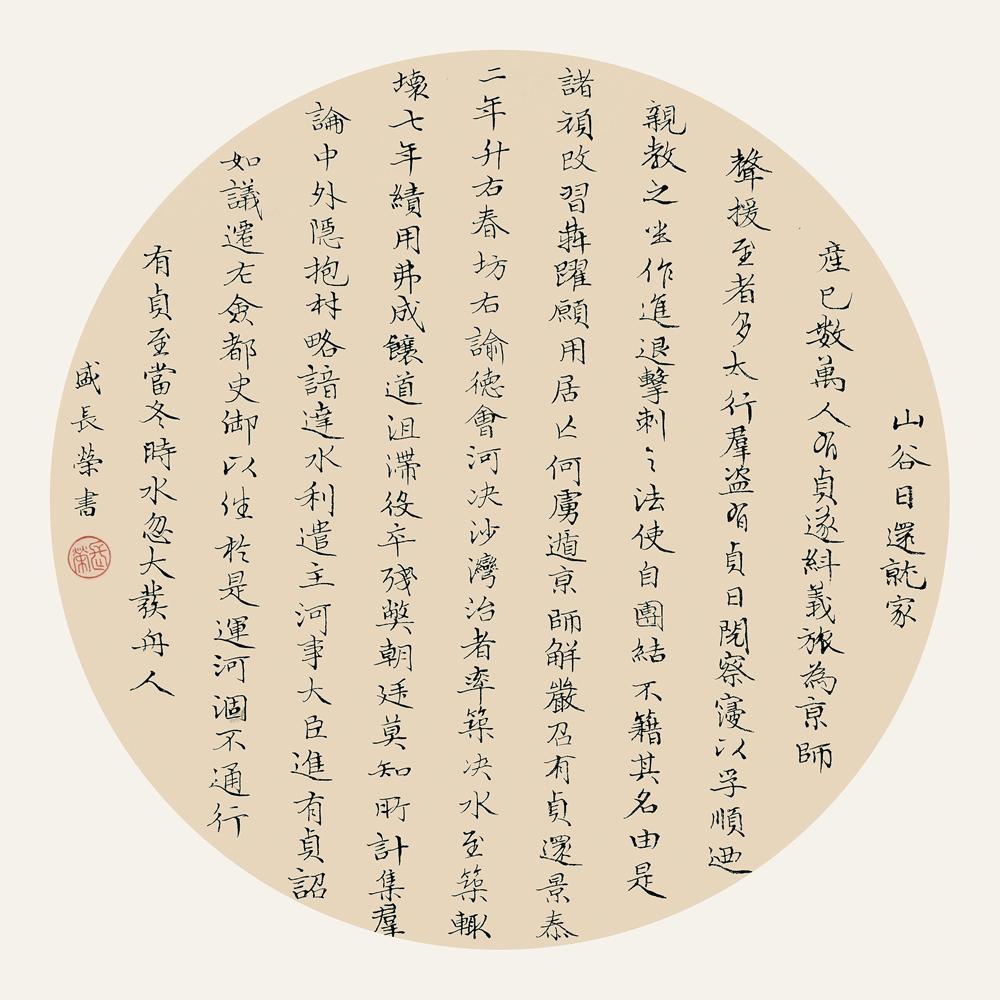 山谷日還就家
產已數萬人有貞遂糾義旅為京師
聲援至者多太行羣盜有貞日閱察寖以孚順迺
親教之坐作進退擊刺之法使自團結不籍其名由是
諸頑改習犇躍願用居亡何虜遁京師解嚴召有貞還景泰
二年升右春坊右諭德會河决沙灣治者率築决水至築輒
壞七年績用弗成饟道沮滯役卒殘獘朝廷莫知所計集羣
論中外隠抱材略諳達水利遣主河事大臣進有貞詔
如議遷左僉都史御以徃於是運河涸不通行
有貞至當冬時水忽大發舟人
盛長榮書
長榮